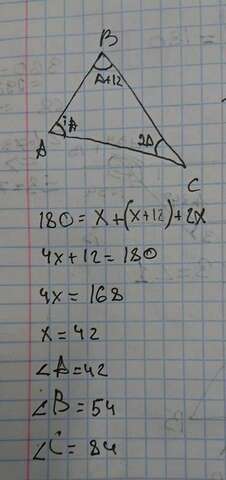 B
A+12
A
2A
A
C
180 = x + (x+12) + 2x
4x + 12 = 180
4x = 168
x = 42
∠A = 42
∠B = 54
∠C = 84